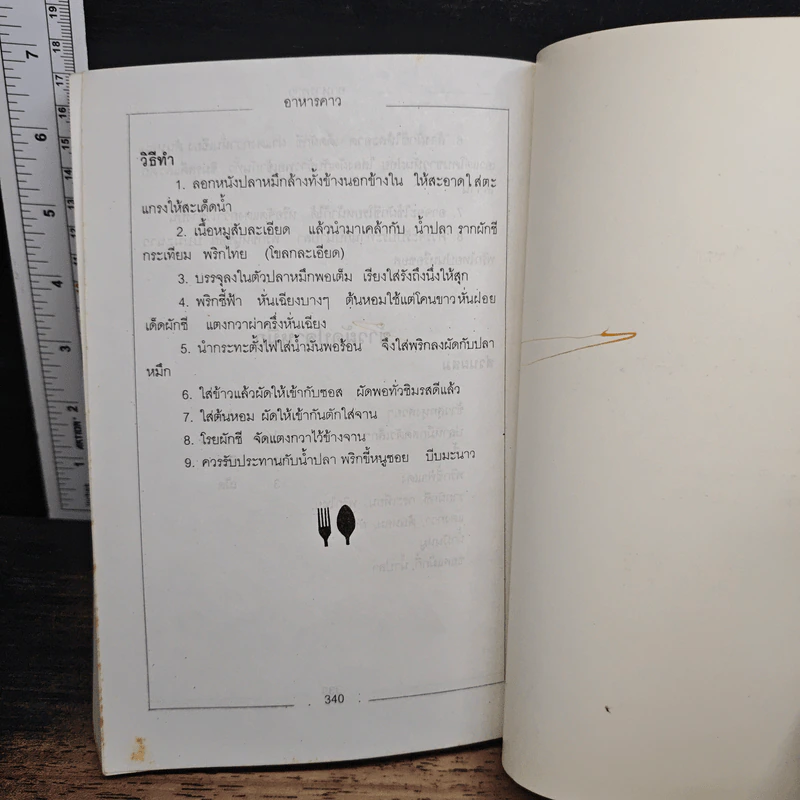 อาหารคาว
วิธีทำ
1. ลอกหนังปลาหมึกล้างทั้งข้างนอกข้างใน ให้สะอาดใส่ตะ
แกรงให้สะเด็ดน้ำ
2. เนื้อหมูสับละเอียด แล้วนำมาเคล้ากับ น้ำปลา รากผักชี
กระเทียม พริกไทย (โขลกละเอียด)
3. บรรจุลงในตัวปลาหมึกพอเต็ม เรียงใส่รังถึงนึ่งให้สุก
4. พริกชี้ฟ้า หั่นเฉียงบางๆ ต้นหอมใช้แต่โคนขาวหั่นฝอย
เด็ดผักชี แตงกวาผ่าครึ่งหั่นเฉียง
5. นำกระทะตั้งไฟใส่น้ำมันพอร้อน จึงใส่พริกลงผัดกับปลา
หมึก
6. ใส่ข้าวแล้วผัดให้เข้ากับซอส ผัดพอทั่วชิมรสดีแล้ว
7. ใส่ต้นหอม ผัดให้เข้ากันตักใส่จาน
8. โรยผักชี จัดแตงกวาไว้ข้างจาน
9. ควรรับประทานกับน้ำปลา พริกขี้หนูซอย บีบมะนาว
340
7
6
5
4
3
2
1
19
18
17
16
15
14
13
12